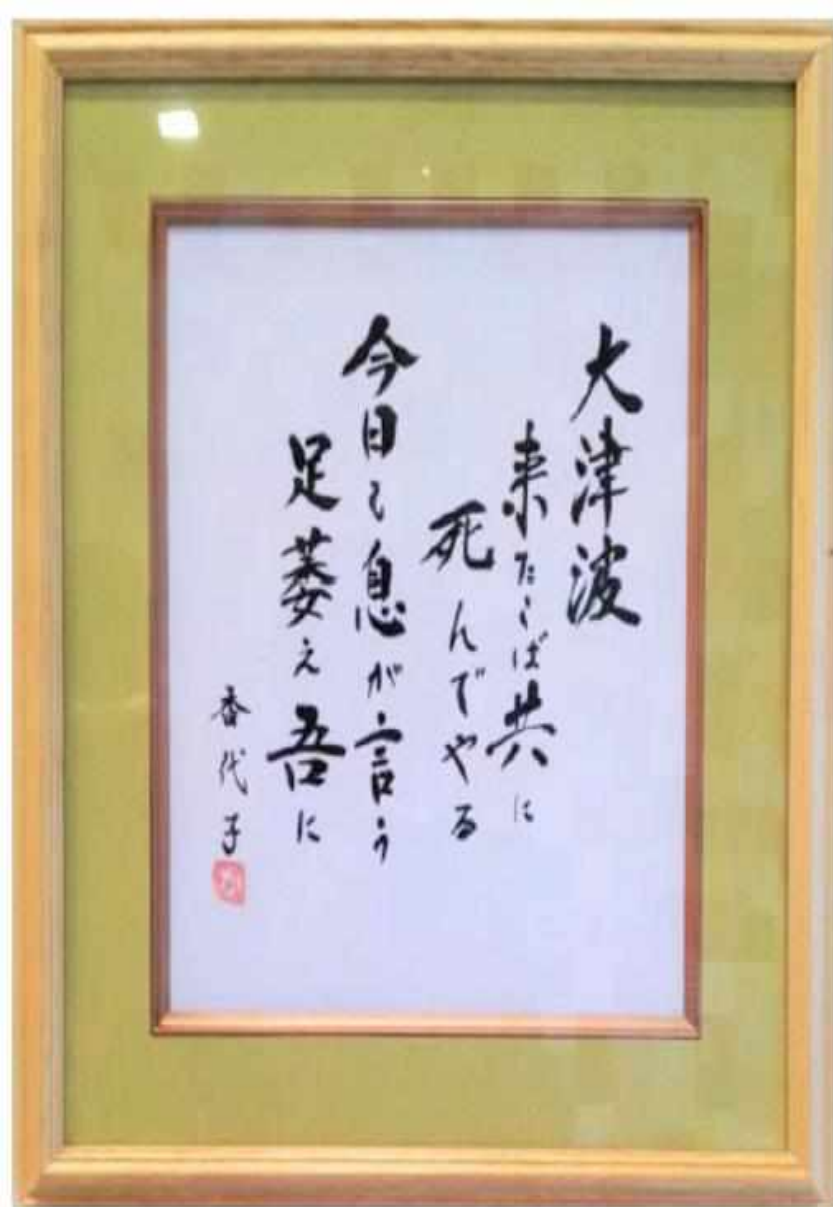 大津波
来たらば共に
死んでやる
今日も息が言う
足萎え吾に
香代子
か